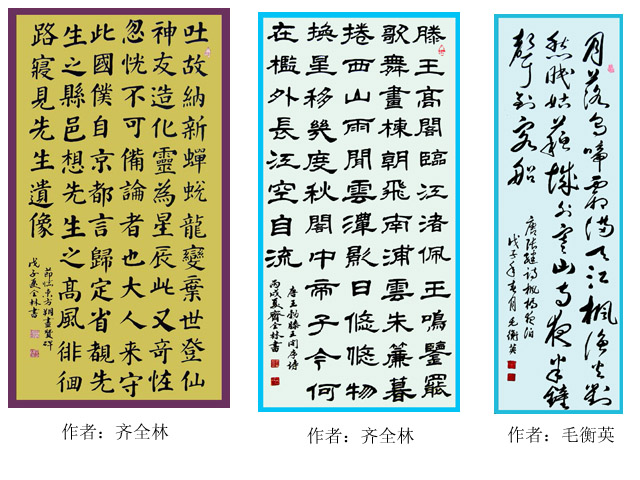 吐故納新蟬蛻龍變棄世登仙
神友造化靈為星辰此又奇怪
忽恍不可備論者也大人来守
此國僕自京都言歸定省覩先
生之縣邑想先生之高風徘徊
路寢見先生遺像
節临東方朔畫贊碑
戊子夏全林書
作者：齐全林
滕王高閣臨江渚佩王鳴鑾罷
歌舞畫棟朝飛南浦雲朱簾暮
捲西山雨閒雲潭影日悠悠物
換星移幾度秋閣中帝子今何
在檻外長江空自流
唐王勃滕王閣序詩
丙戌夏齊全林書
作者：齐全林
月落烏啼霜满天江楓漁火對
愁眠姑蘇城外寒山寺夜半鐘
聲到客船
唐張繼詩楓橋夜泊
戊子年春月毛衡英
作者：毛衡英